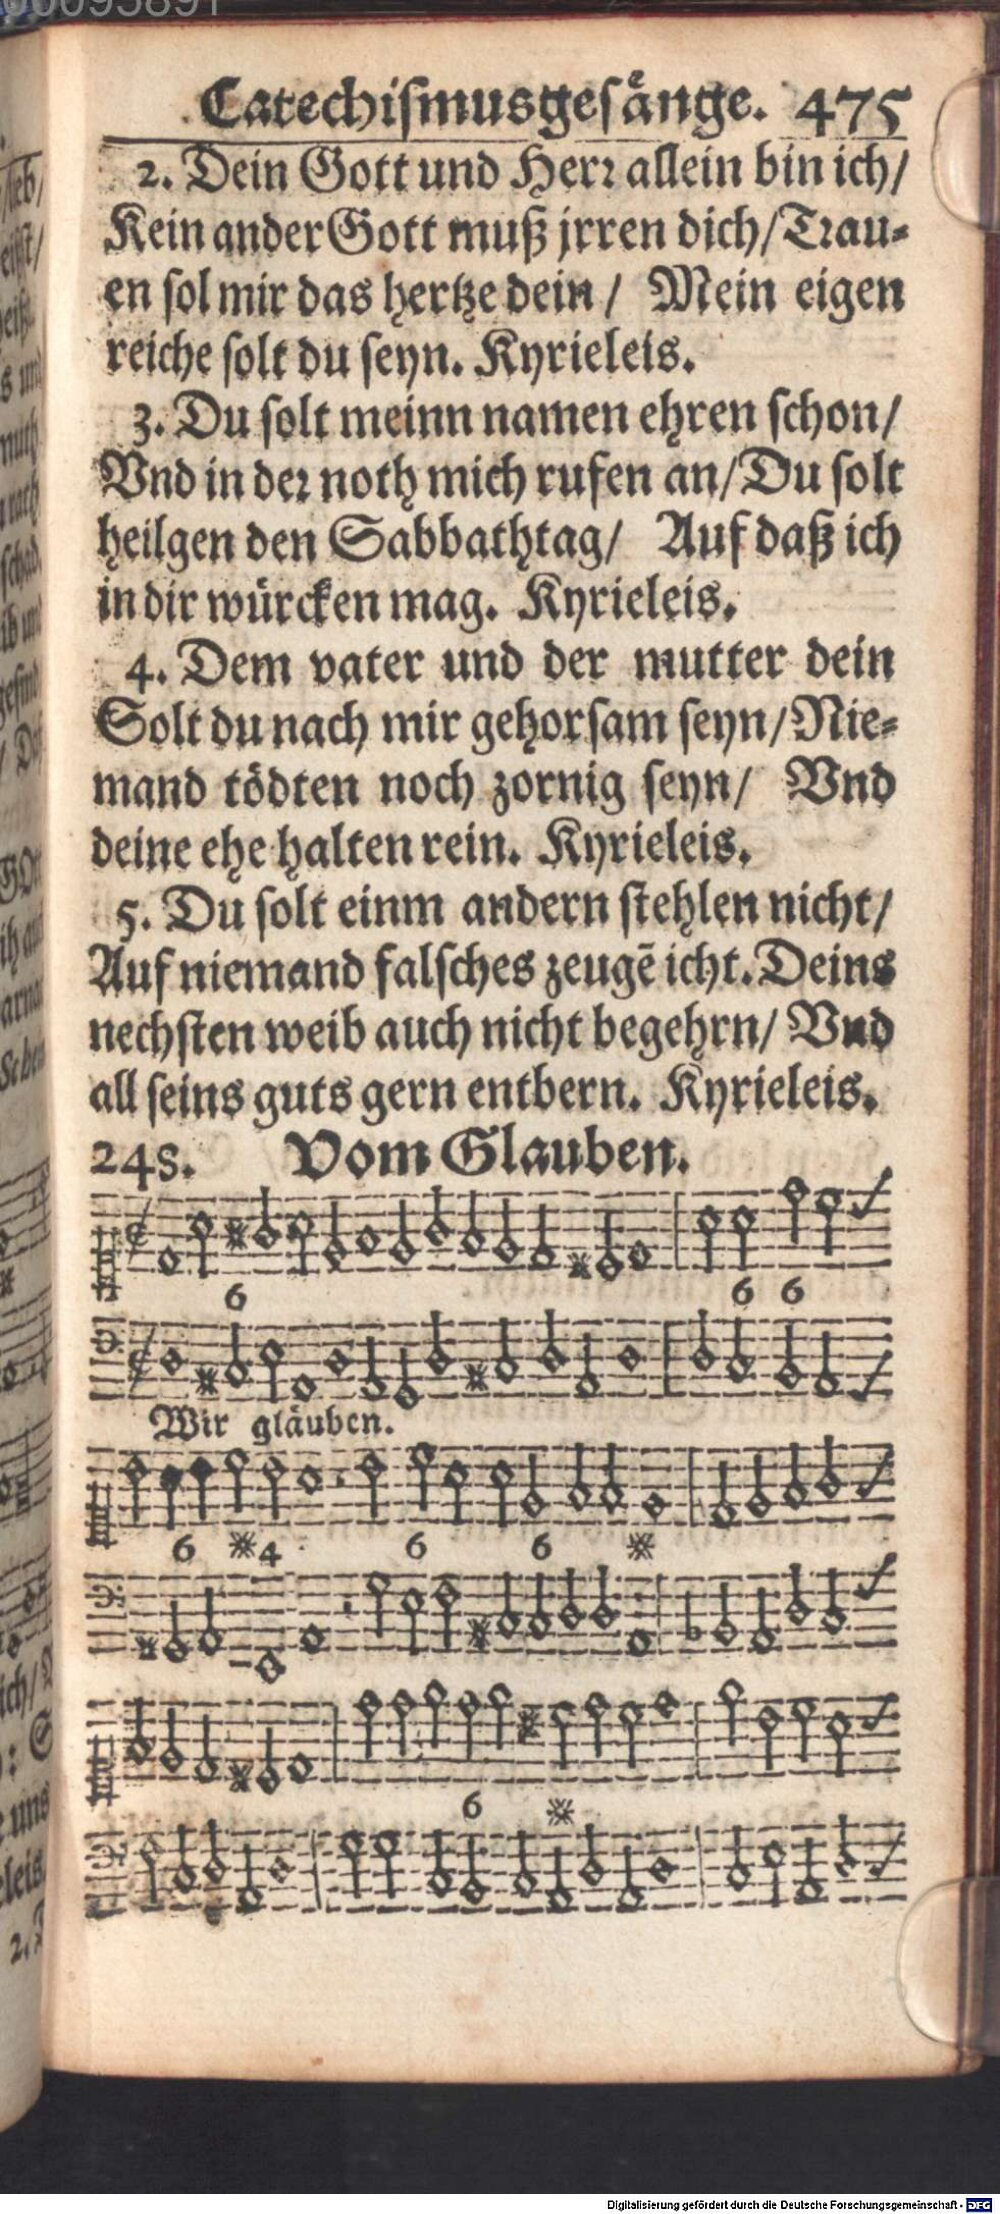 Catechiſmusgeſänge. 475
2. Dein Gott und Herr allein bin ich/
Kein ander Gott muß jrren dich/ Trau⸗
en ſol mir das hertze dein/ Mein eigen
reiche ſolt du ſeyn. Kyrieleis.
3. Du ſolt meinn namen ehren ſchon/
Vnd in der noth mich rufen an/ Du ſolt
heilgen den Sabbathtag/ Auf daß ich
in dir würcken mag. Kyrieleis.
4. Dem vater und der mutter dein
Solt du nach mir gehorſam ſeyn/ Nie⸗
mand tödten noch zornig ſeyn/ Vnd
deine ehe halten rein. Kyrieleis.
5. Du ſolt einm andern ſtehlen nicht/
Auf niemand falſches zeugē icht. Deins
nechſten weib auch nicht begehrn/ Vnd
all ſeins guts gern entbern. Kyrieleis.
248. Vom Glauben.
6 6 6
Wir gläuben.
6 4 6 6
6
Digitalisierung gefördert durch die Deutsche Forschungsgemeinschaft - DFG